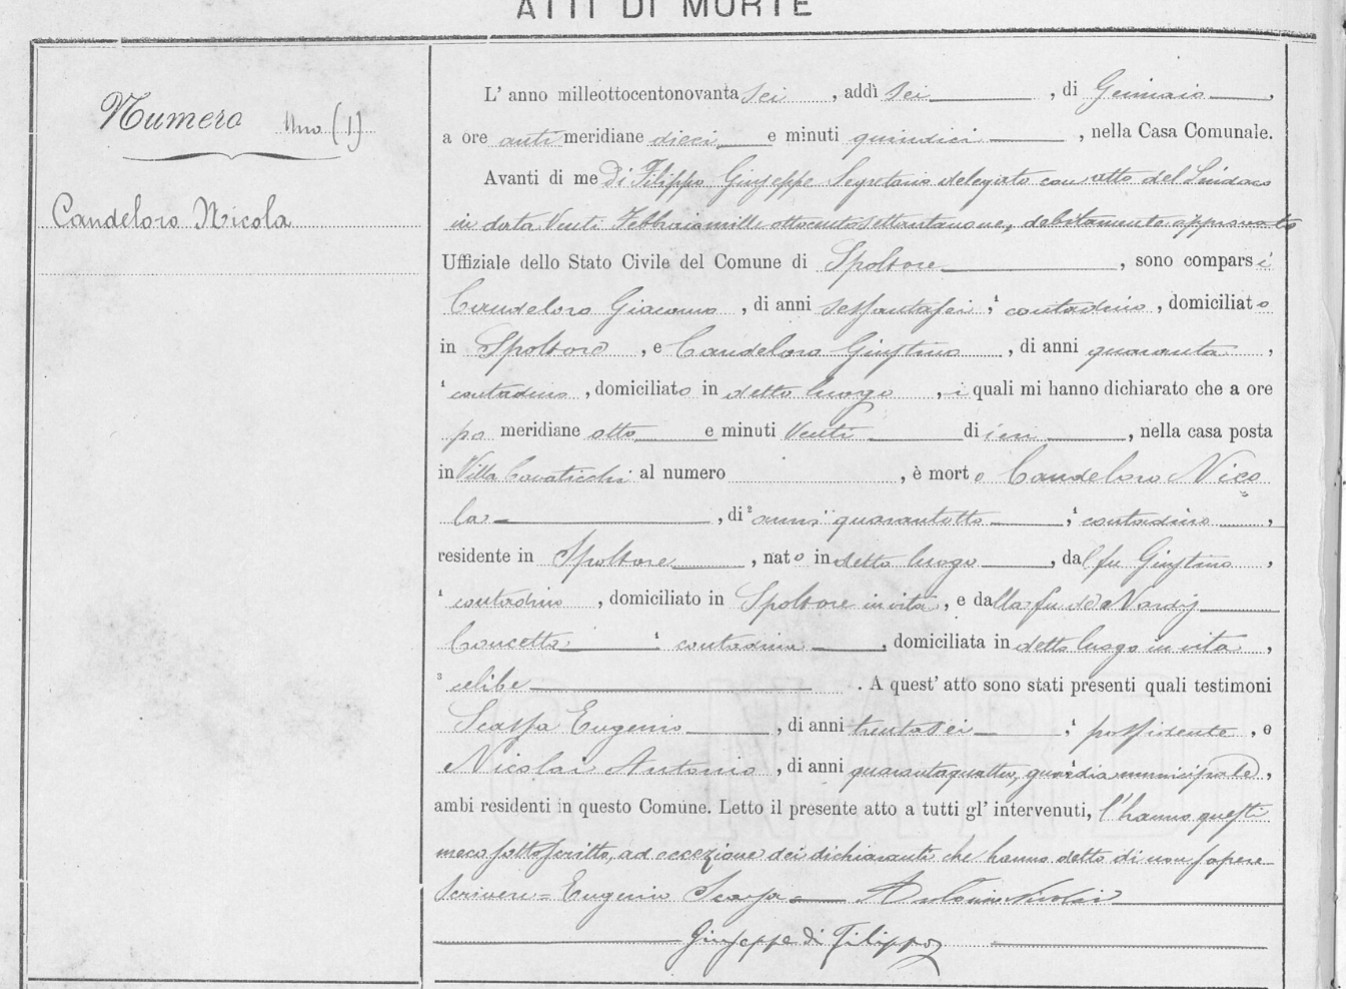 ATTI DI MORTE
Numero Uno (1)
Candeloro Nicola
L' anno milleottocentonovanta sei, addì sei, di Gennaio,
a ore anti meridiane dieci e minuti quindici, nella Casa Comunale.
Avanti di me Di Filippo Giuseppe Segretario delegato con atto del Sindaco
in data Venti Febbraio mille ottocento settantanove, debitamente approvato
Uffiziale dello Stato Civile del Comune di Spoltore, sono comparsi
Candeloro Giacomo, di anni sessantasei, contadino, domiciliato
in Spoltore, e Candeloro Giustino, di anni quaranta,
contadino, domiciliato in detto luogo, i quali mi hanno dichiarato che a ore
po meridiane otto e minuti Venti di ieri, nella casa posta
in Villa Cavaticchi al numero, è morto Candeloro Nico
la, di anni quarantotto, contadino,
residente in Spoltore, nato in detto luogo, dal fu Giustino,
contadino, domiciliato in Spoltore in vita, e dalla fu
Concetta contadina, domiciliata in detto luogo in vita,
celibe. A quest' atto sono stati presenti quali testimoni
Scarpa Eugenio, di anni trentasei, possidente, e
Nicolai Antonio, di anni quarantaquattro, guardia municipale,
ambi residenti in questo Comune. Letto il presente atto a tutti gl' intervenuti, l'hanno questi
meco sottoscritto, ad eccezione dei dichiaranti che hanno detto di non sapere
scrivere = Eugenio Scarpa Antonio Nicolai
Giuseppe di Filippo